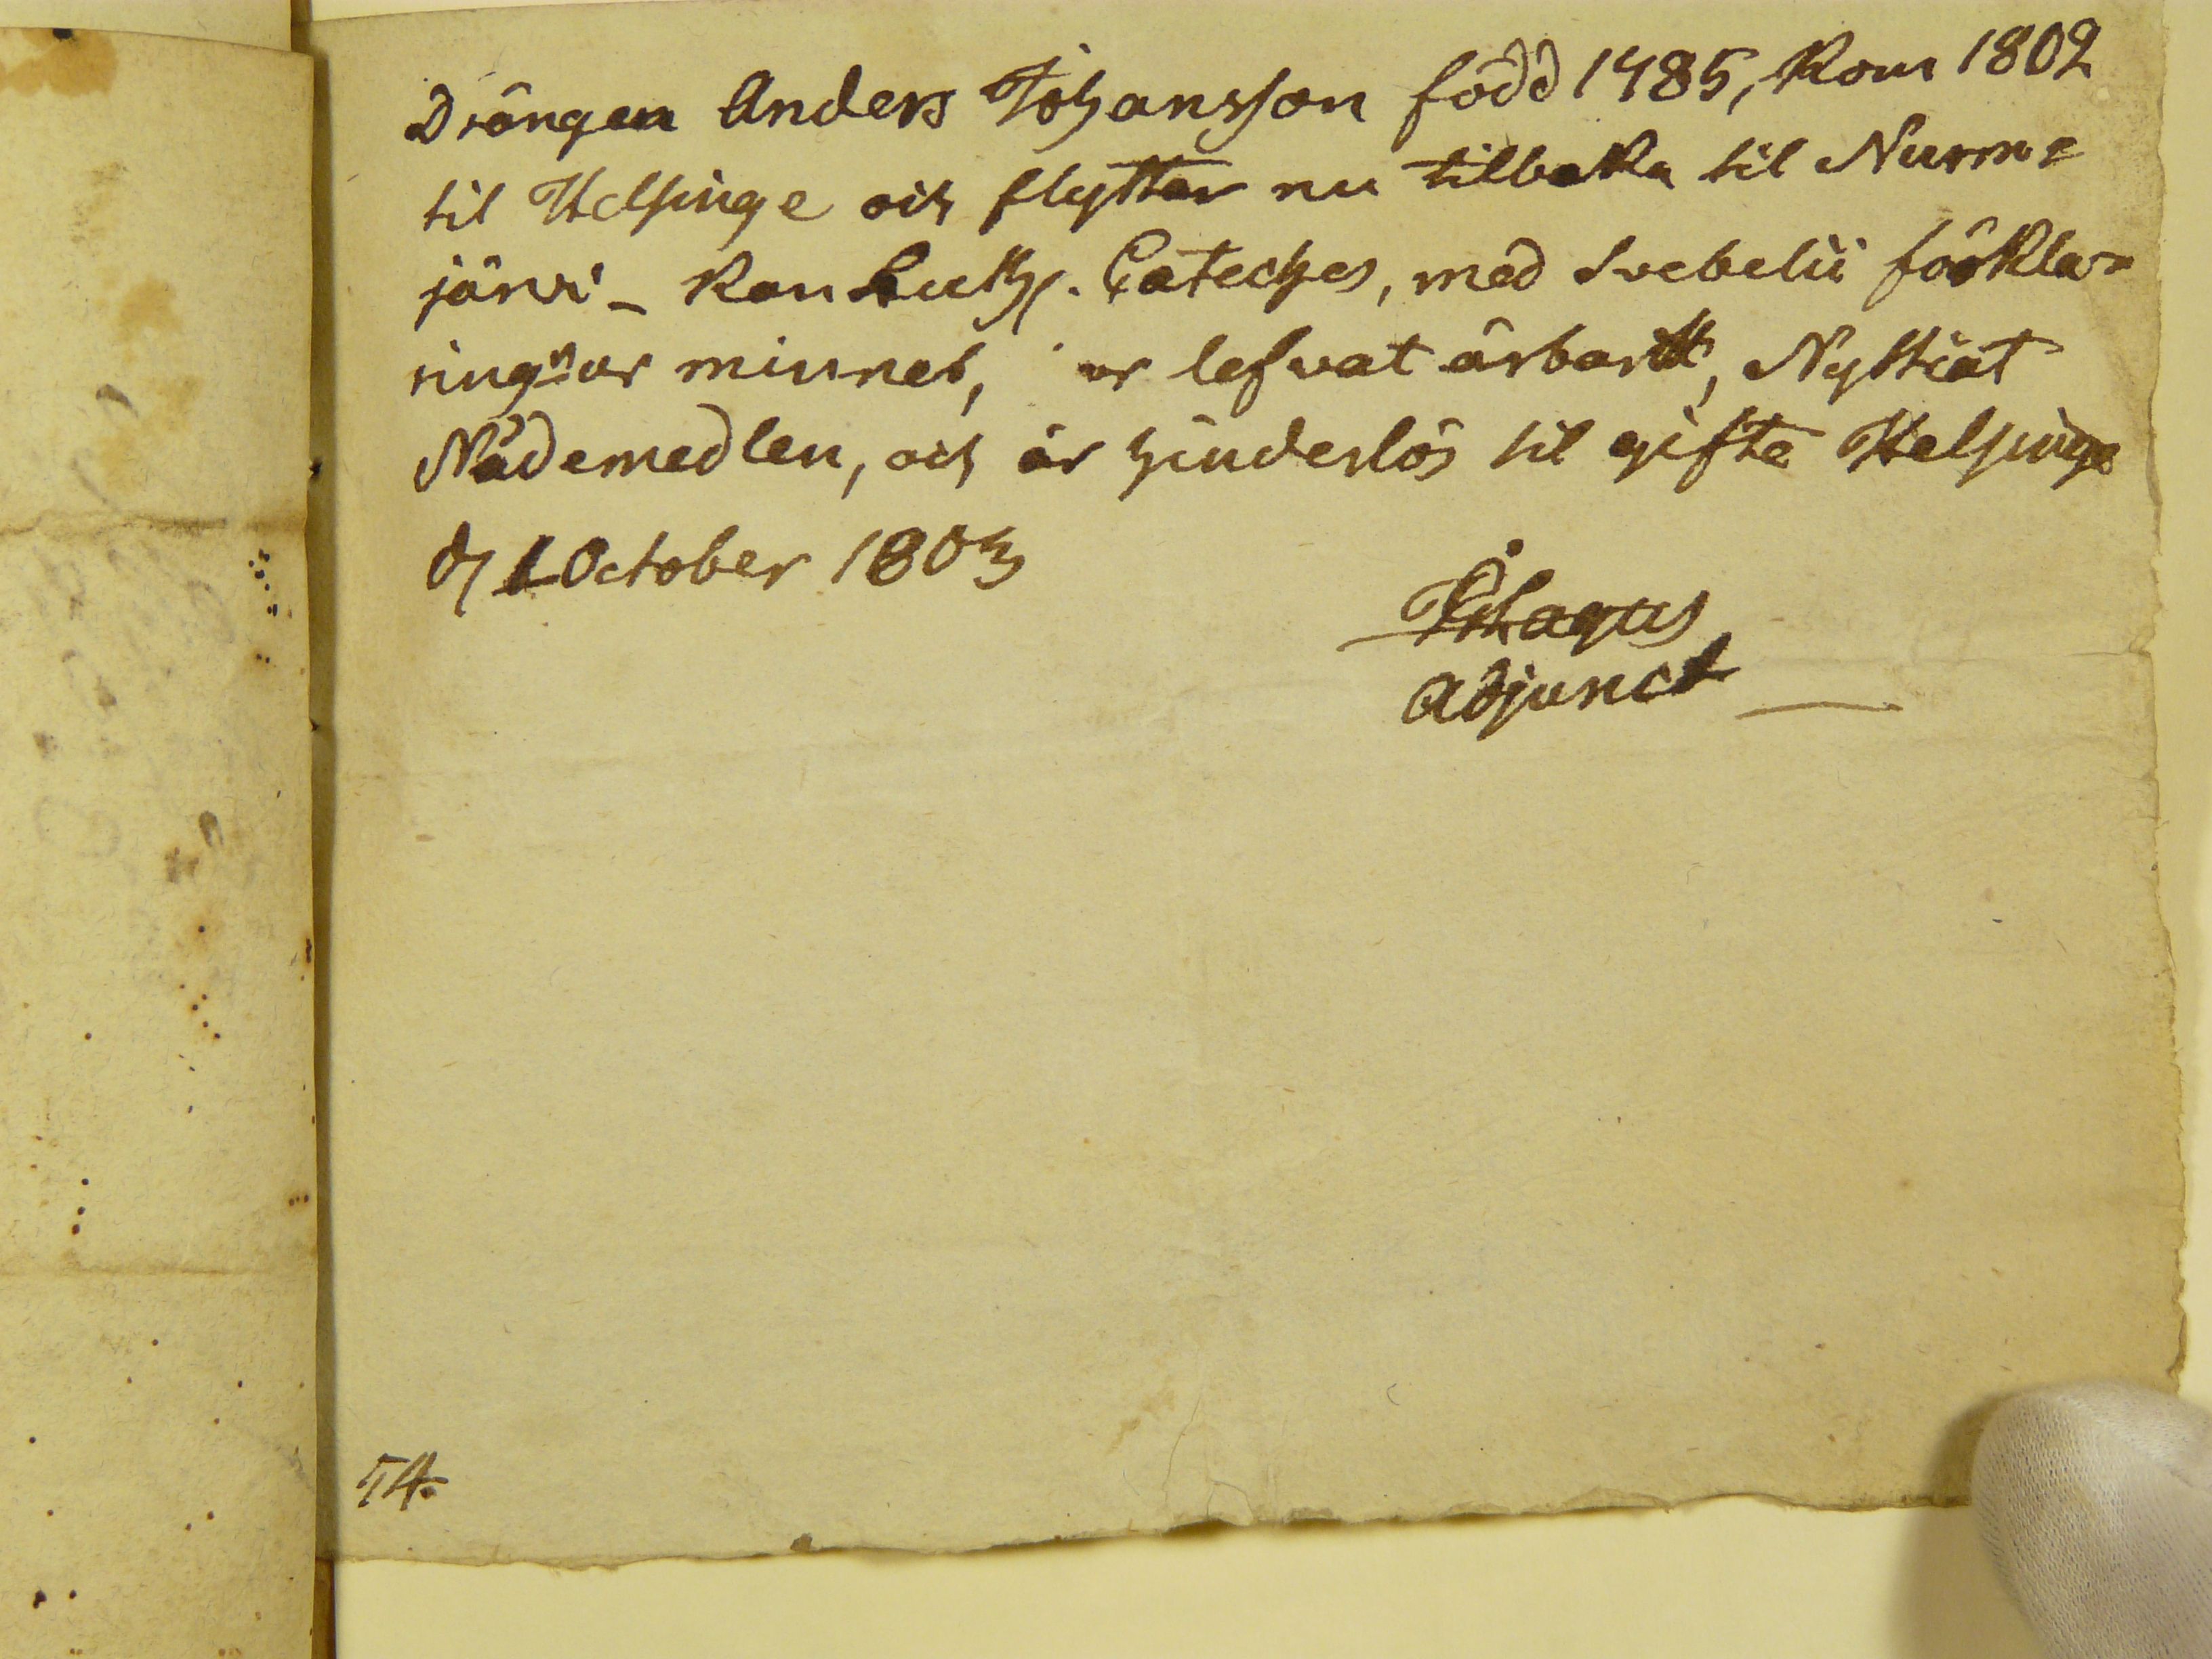 Drängen Anders Johansson född 1785, kom 1802
til Helsinge och flyttar nu tilbaka til Nurms
järvi - kan Luth. Cateches, med Svebelii förkla=
ring ur minnet, är lefvat ärbart, Nyttiat
Nådemedlen, och är hinderlös til gifte Helsinge
d 1 October 1803
Adjunct
54.